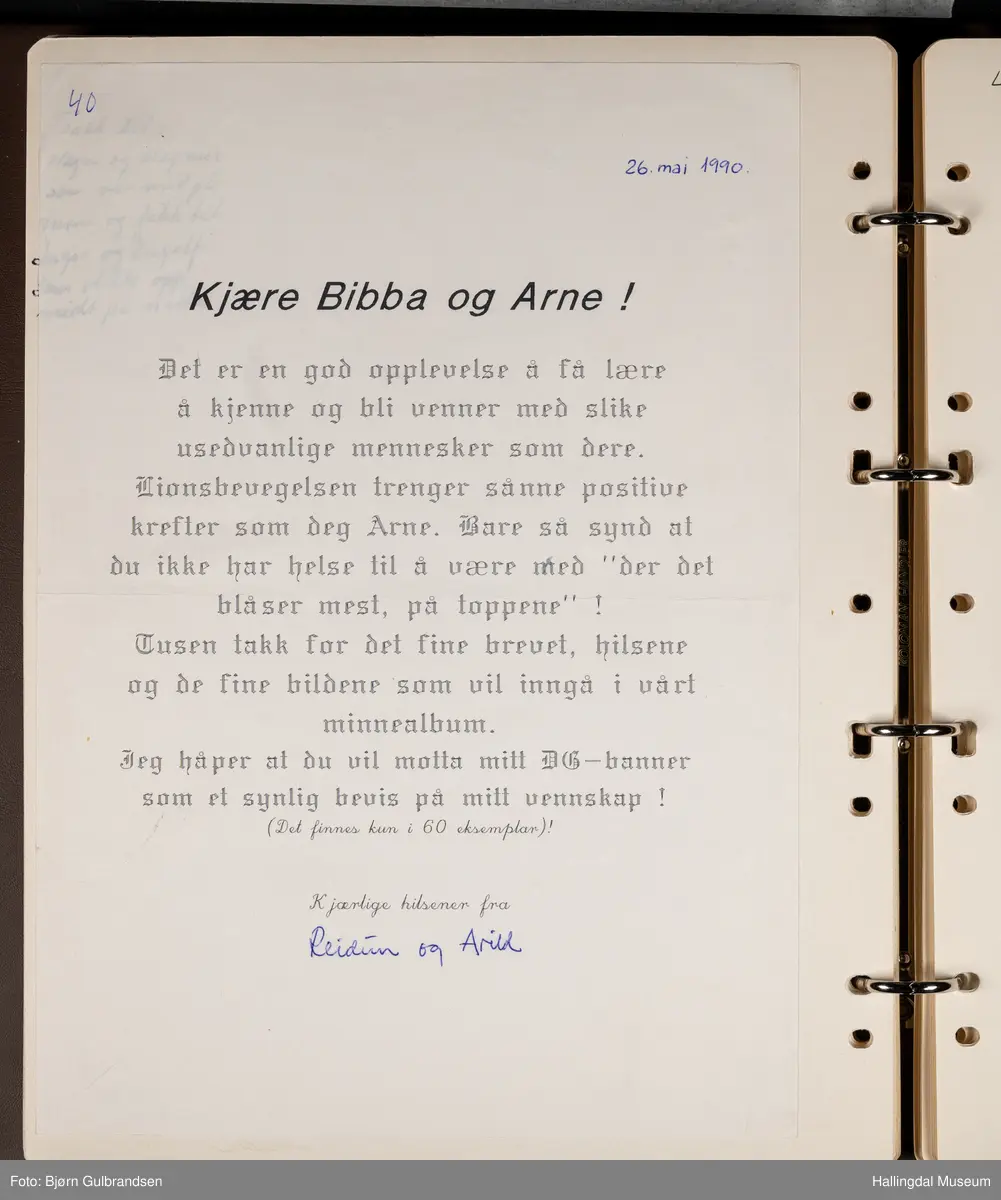 40
26. mai 1990.
Kjære Bibba og Arne !
Det er en god opplevelse å få lære
å kjenne og bli venner med slike
usedvanlige mennesker som dere.
Lionsbevegelsen trenger sånne positive
krefter som deg Arne. Bare så synd at
du ikke har helse til å være med "der det
blåser mest, på toppene" !
Tusen takk for det fine brevet, hilsene
og de fine bildene som vil inngå i vårt
minnealbum.
Jeg håper at du vil motta mitt DG-banner
som et synlig bevis på mitt vennskap !
(Det finnes kun i 60 eksemplar)!
Kjærlige hilsener fra
Reidun og Arild
Foto: Bjørn Gulbrandsen
Hallingdal Museum